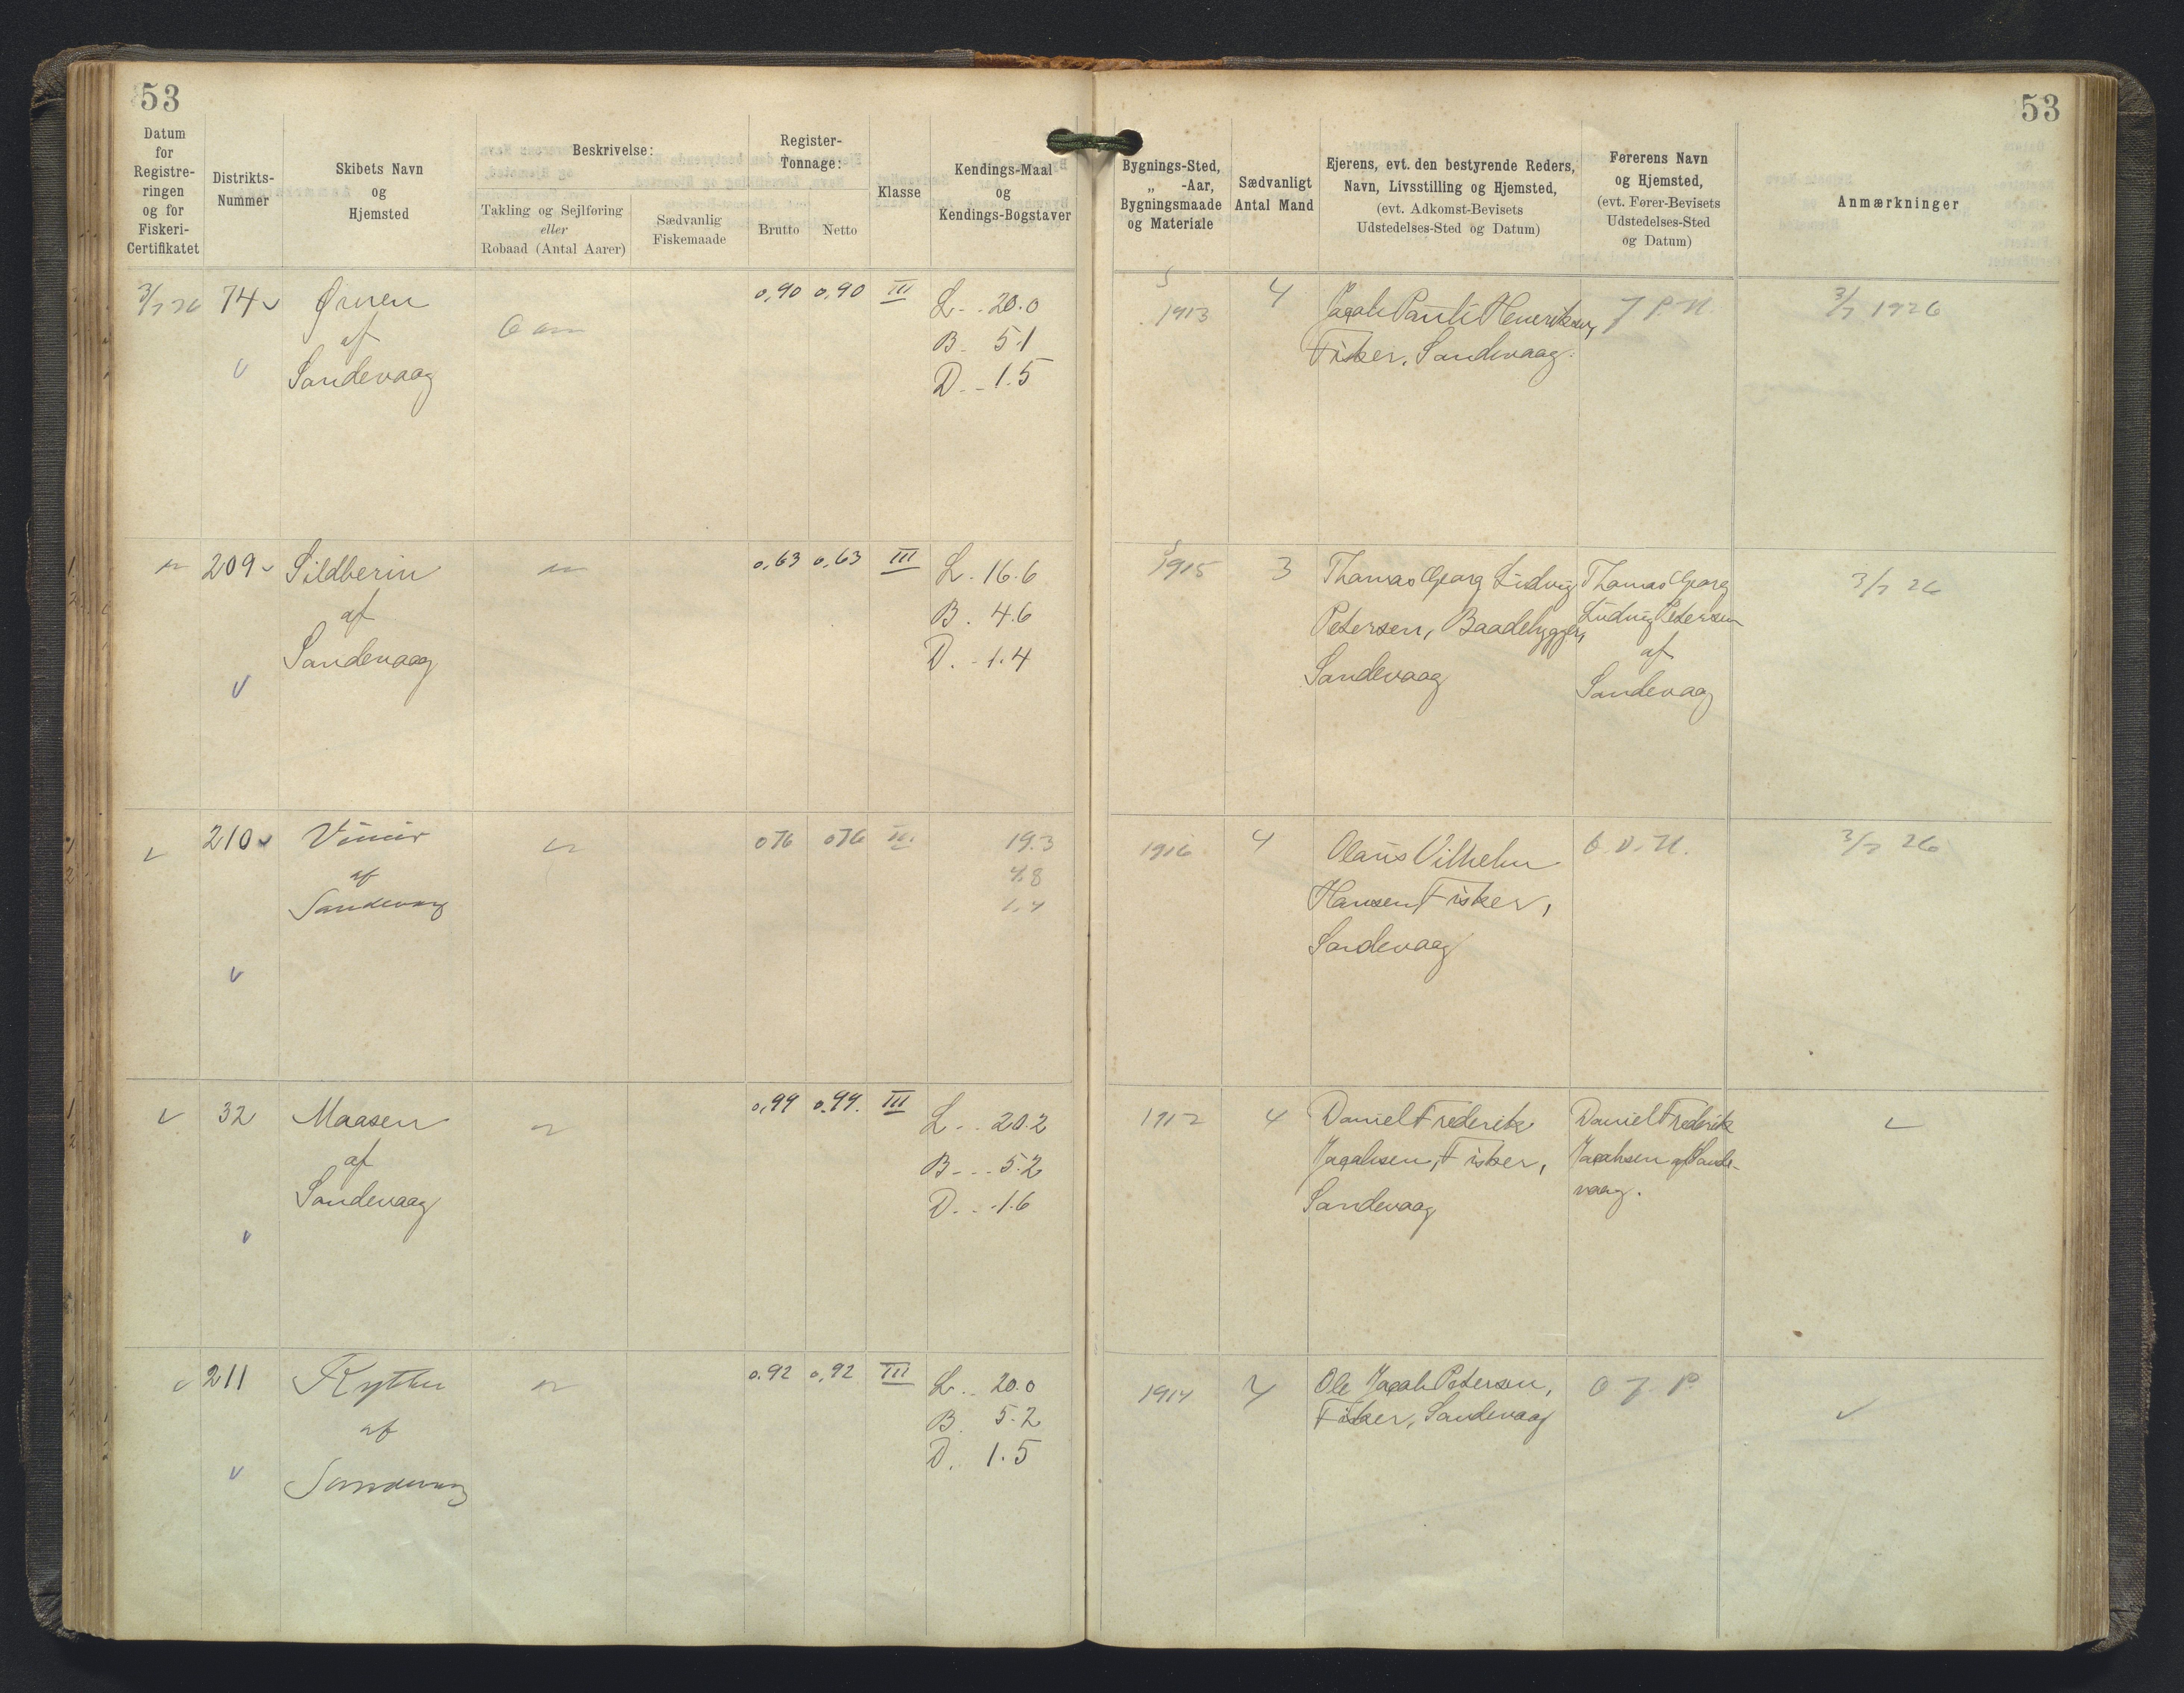 53
53
Datum
for
Registre-
ringen
og for
Fiskeri-
Certifikatet
Distrikts-
Nummer
Skibets Navn
og
Hjemsted
Beskrivelse:
Takling og Sejlføring
eller
Robaad (Antal Aarer)
Sædvanlig
Fiskemaade
Register-
Tonnage:
Brutto
Netto
Klasse
Kendings-Maal
og
Kendings-Bogstaver
Bygnings-Sted,
„ -Aar,
Bygningsmaade
og Materiale
Sædvanligt
Antal Mand
Ejerens, evt. den bestyrende Reders,
Navn, Livsstilling og Hjemsted,
(evt. Adkomst-Bevisets
Udstedelses-Sted og Datum)
Førerens Navn
og Hjemsted,
(evt. Fører-Bevisets
Udstedelses-Sted
og Datum)
Anmærkninger
3/7 26 74 Ørnen 0,90 0,90 III L. 20.0 1913 4 Jacob Pauli Henriksen, J P. H. 3/7 1926
af B. 5.1 Fisker, Sandevaag.
Sandevaag D. 1.5
209 Sildberin 0,63 0,63 III L. 16.6 1915 3 Thomas Georg Ludvig Thomas Georg 3/7 26
af B. 4.6 Petersen, Baadebygger, Ludvig Petersen
Sandevaag D. 1.4 Sandevaag af
Sandevaag
210 076 076 III 19.3 1916 4 Olaus Vilhelm O. V. H. 3/7 26
af 4.8 Hansen, Fisker,
Sandevaag 1.4 Sandevaag
32 Maasen 0,99 0.99. III L. 20.2 1912 4 Daniel Frederik Daniel Frederik
af B. 5.2 Jacobsen, Fisker, Jacobsen af Sande-
Sandevaag D. 1.6 Sandevaag vaag.
211 0.92 0,92 III L. 20.0 1914 4 Ole Jacob Petersen, O J. P.
af B. 5.2 Fisker, Sandevaag
Sandevaag D. 1.5